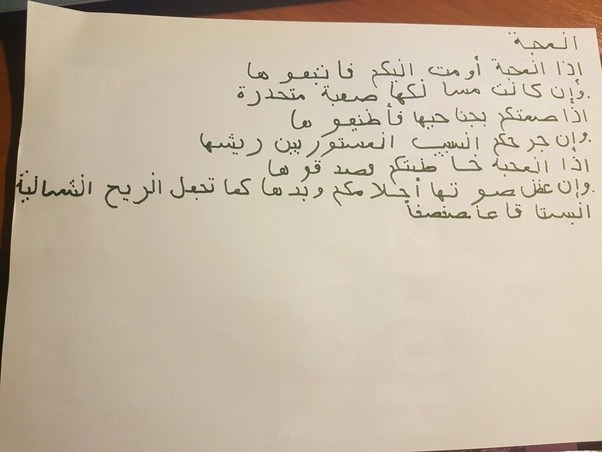 المحبة
إذا المحبة أومت اليكم فاتبعو ها
.وإن كانت مسا لكها صعبة متحدرة
اذا ضمتكم بجناحيها فأطيعو ها
.وإن جر حكم السيف المستور بين ريشها
اذا المحبة خا طبتكم فصد قو ها
.وإن عطل صو تها أحلامكم وبددها كما تجعل الريح الشمالية
البستا قاعا صفصفاً